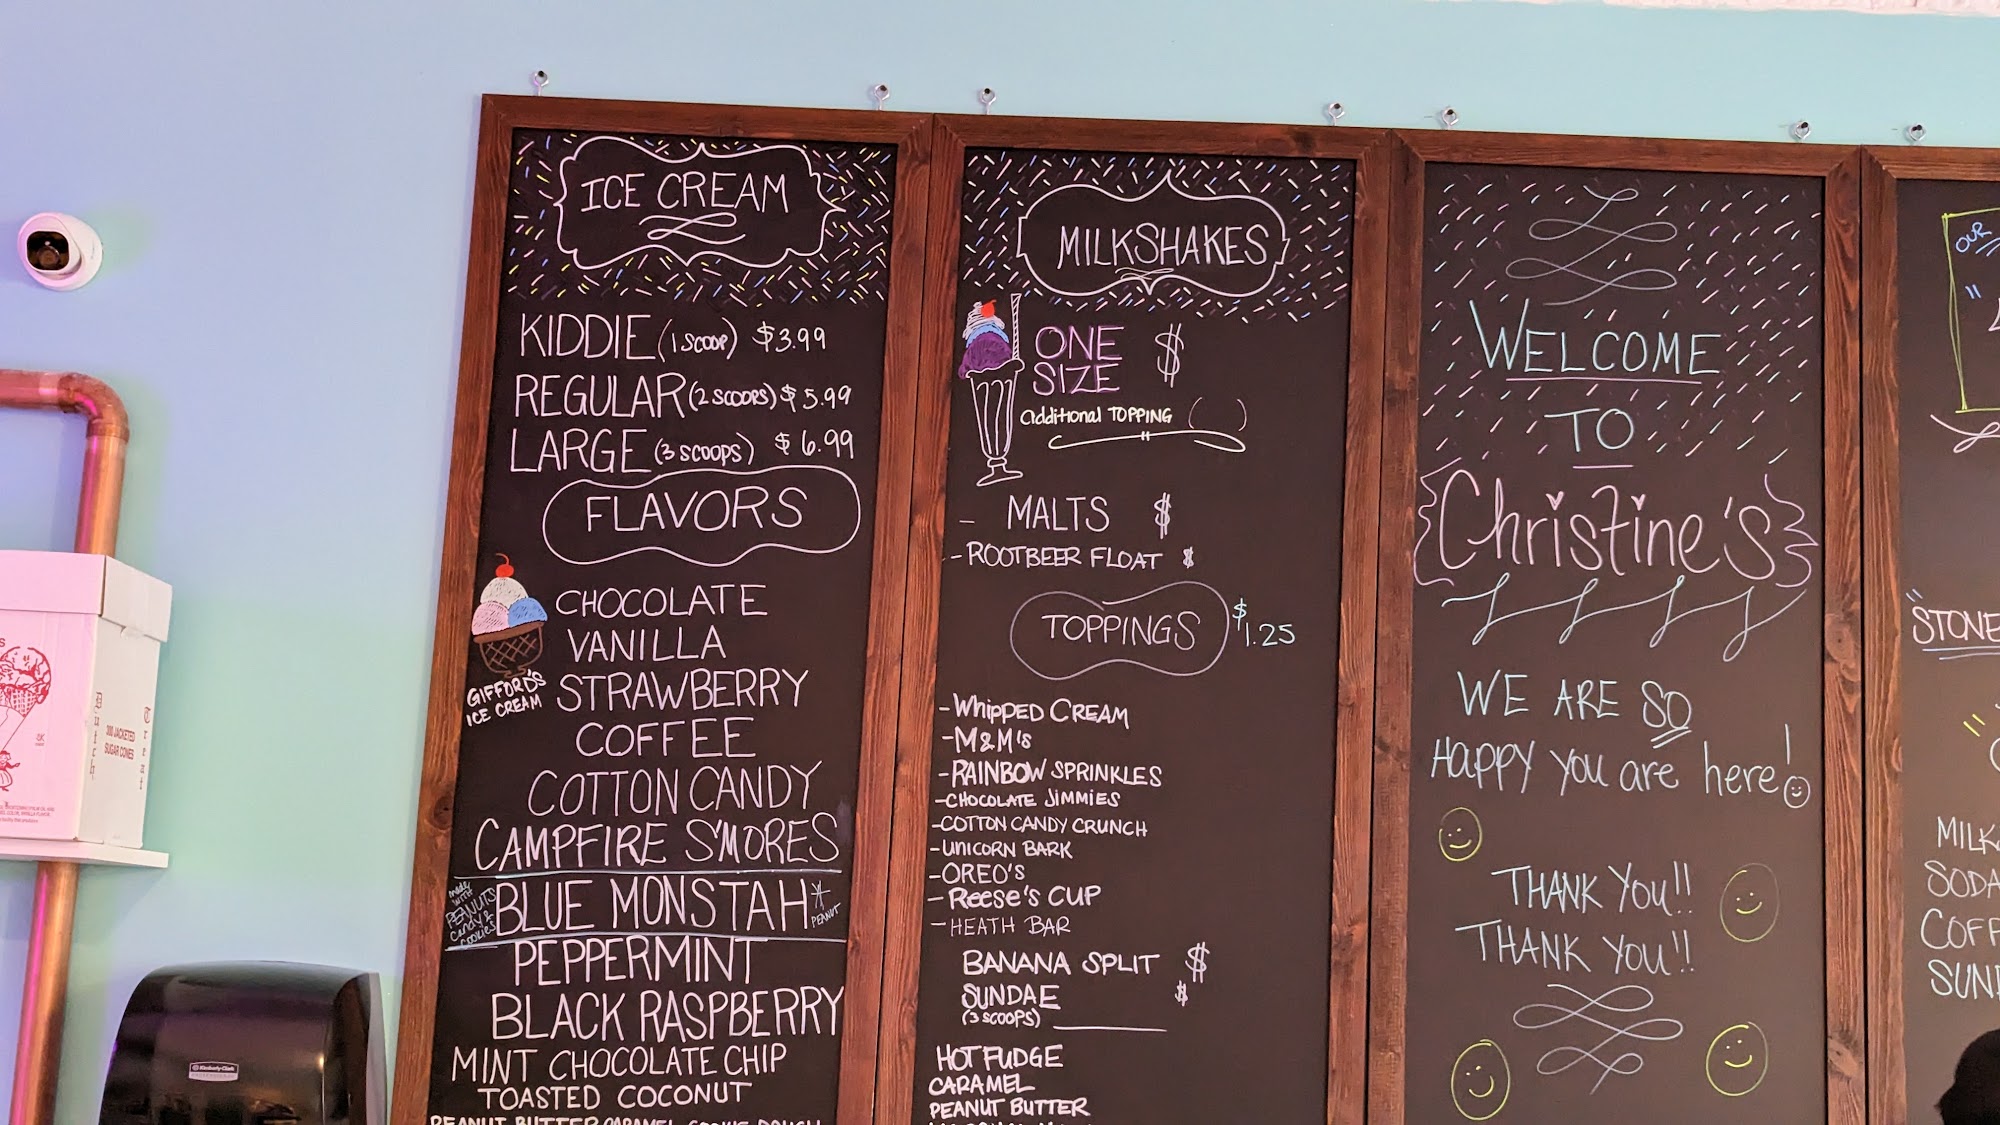 ICE CREAM
KIDDIE (1 SCOOP) $3.99
REGULAR (2 SCOOPS) $5.99
LARGE (3 SCOOPS) $6.99
FLAVORS
GIFFORD'S
ICE CREAM
CHOCOLATE
VANILLA
STRAWBERRY
COFFEE
COTTON CANDY
CAMPFIRE S'MORES
made
WITH
PEANUTS
Candy &
cookies
BLUE MONSTAH *
PEANUT
PEPPERMINT
BLACK RASPBERRY
MINT CHOCOLATE CHIP
TOASTED COCONUT
PEANUT BUTTER CARAMEL COOKIE DOUGH
MILKSHAKES
ONE SIZE $
additional TOPPING ( )
- MALTS $
- ROOTBEER FLOAT $
TOPPINGS $1.25
- WHIPPED CREAM
- M&M's
- RAINBOW SPRINKLES
- CHOCOLATE JIMMIES
- COTTON CANDY CRUNCH
- UNICORN BARK
- OREO'S
- Reese's CUP
- HEATH BAR
BANANA SPLIT $
SUNDAE $
(3 SCOOPS)
HOT FUDGE
CARAMEL
PEANUT BUTTER
WELCOME
TO
Christine's
WE ARE SO
Happy you are here!
THANK YOU!!
THANK YOU!!
OUR
"STONE
MILK
SODA
COFF
SUN
300 JACKETED
SUGAR CONES
Dutch
Treat
Kimberly-Clark